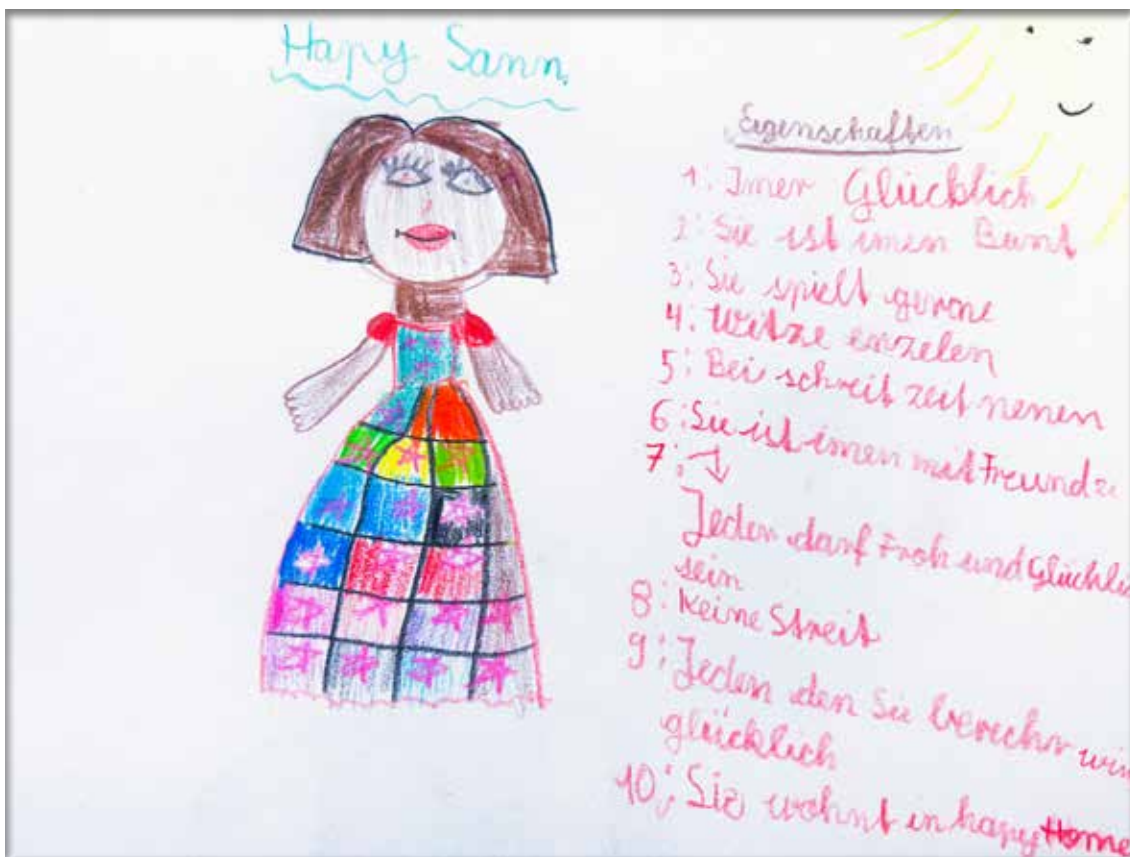 Hapy Sann
Eigenschaften
1: Imer Glücklich
2: Sie ist imer Bunt
3: Sie spielt gerne
4: Witze erzelen
5: Bei schreit zeit nemen
6: Sie ist imer mit Freund
7:
Jeder darf Froh und Glückli
sein
8: Keine Streit
9: Jeder den Sie
glücklich
10: Sie wohnt in hapy Home